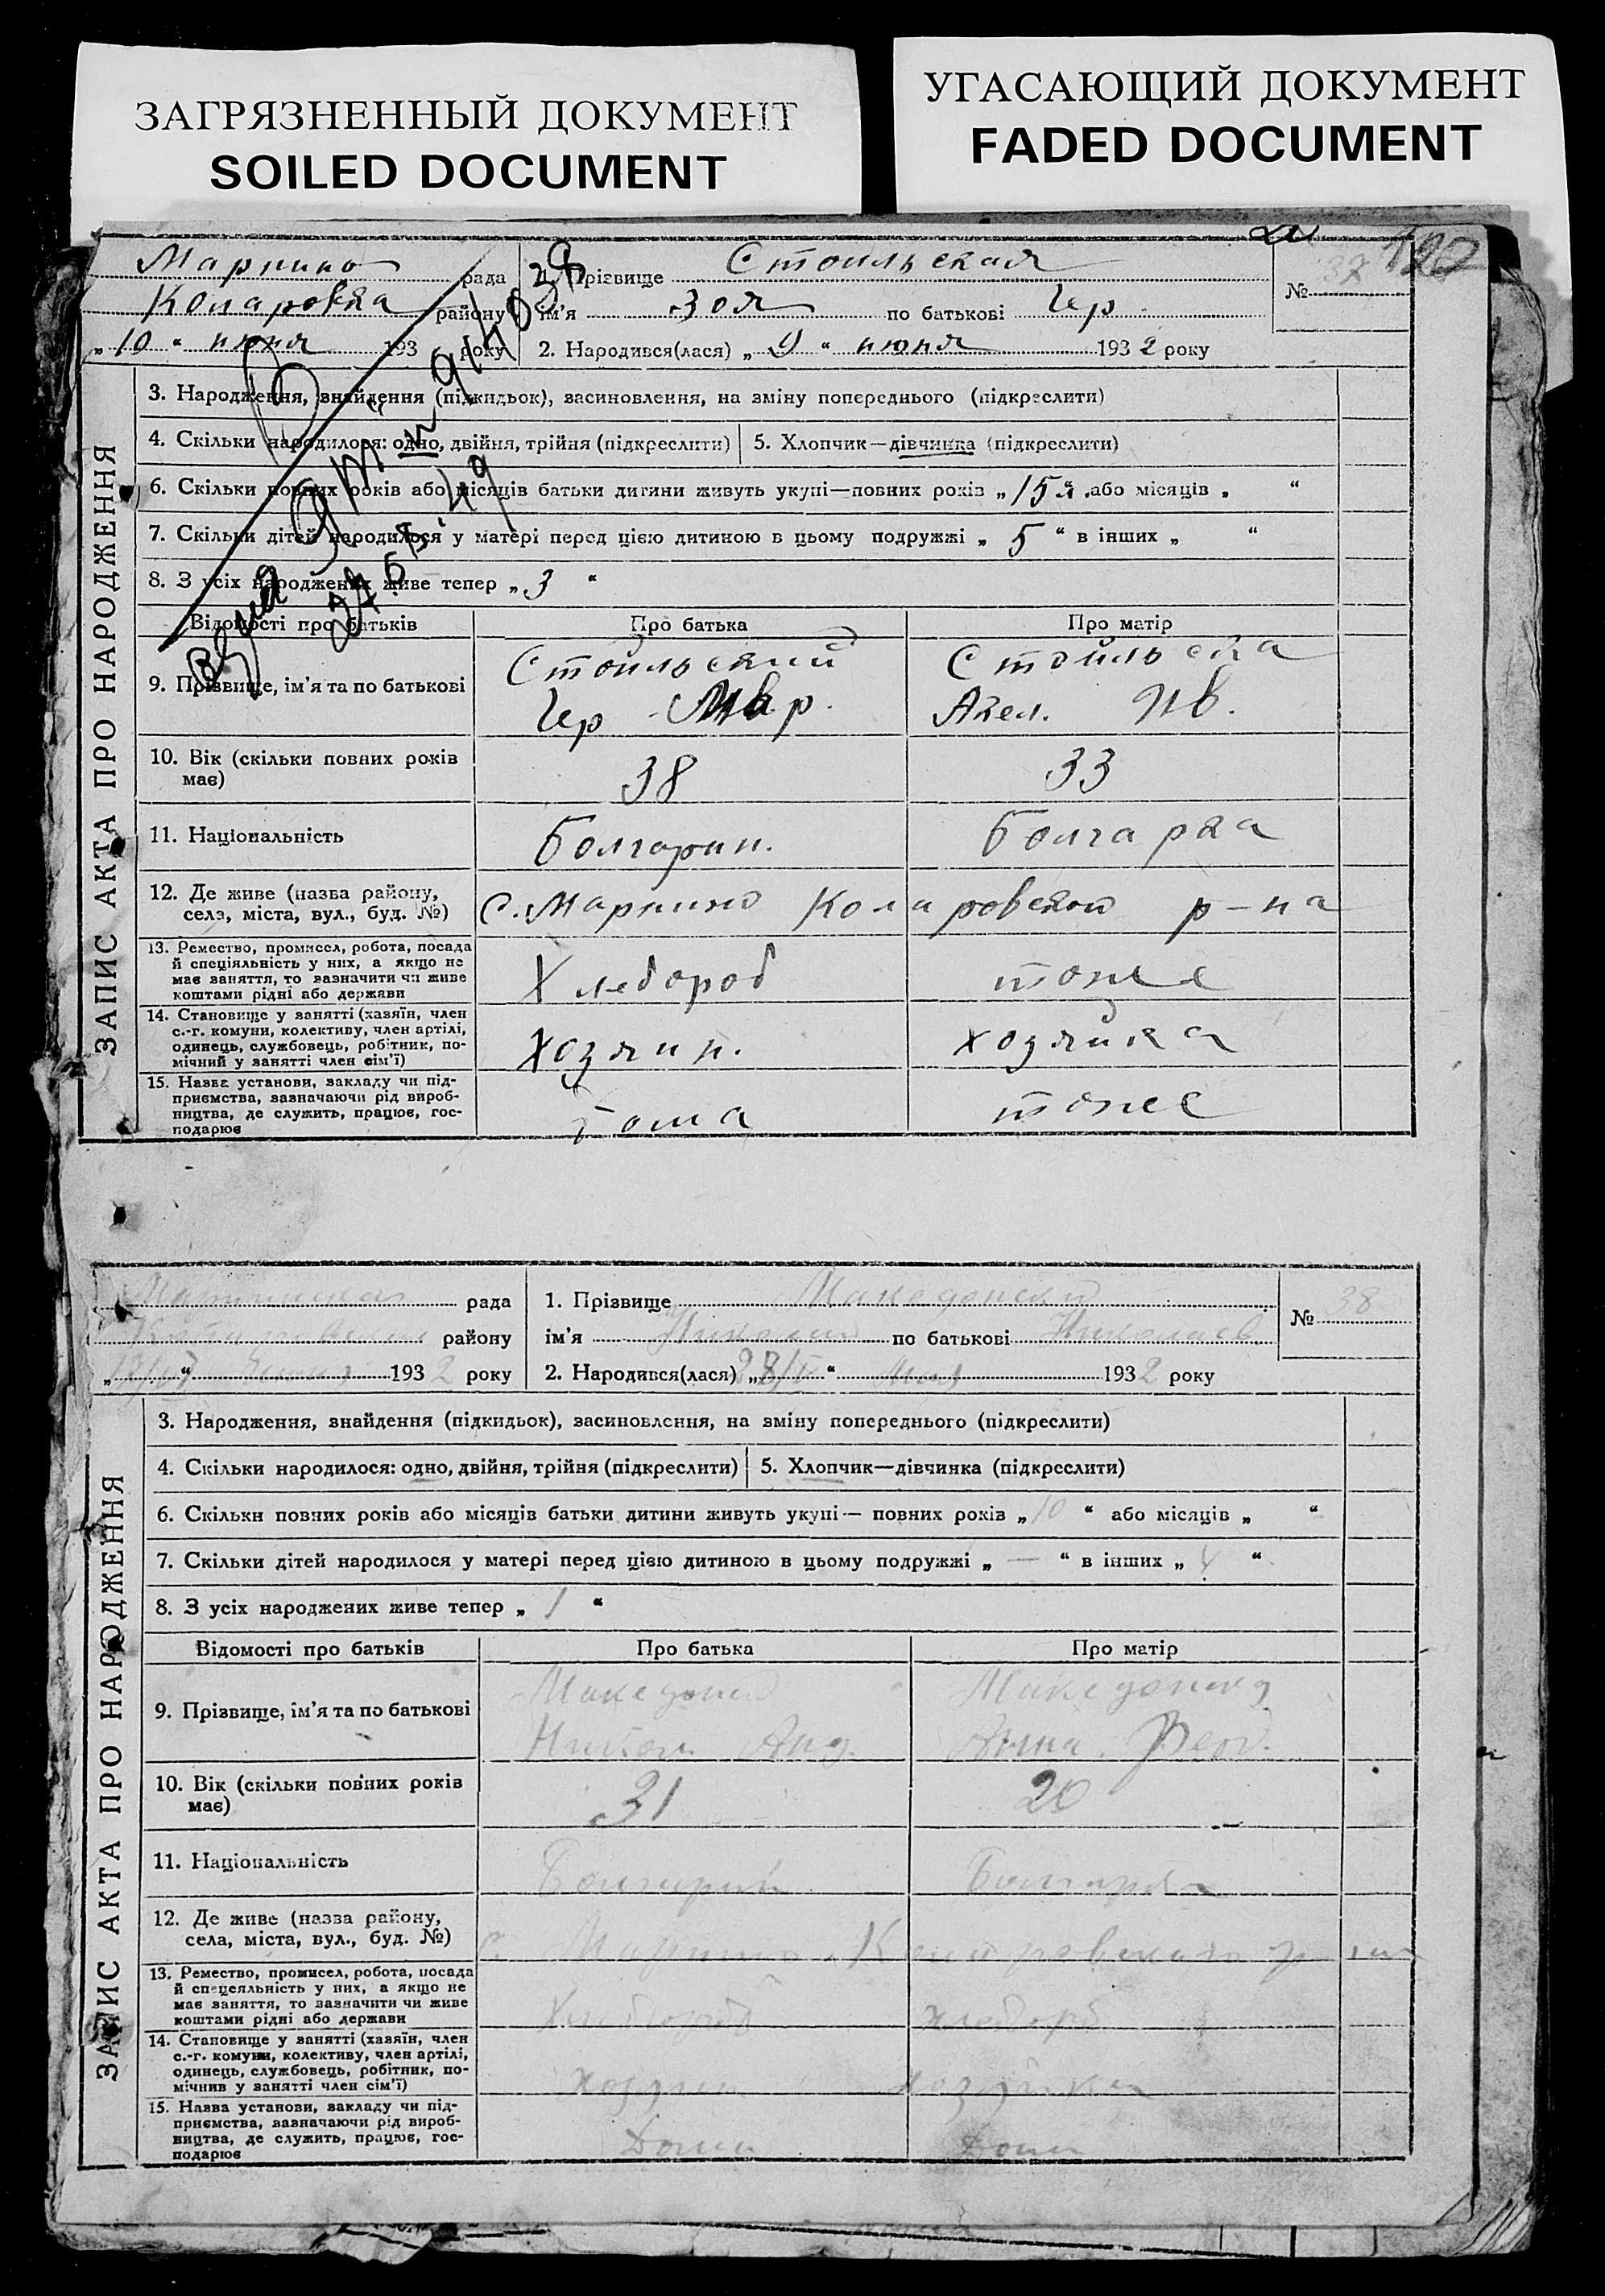 ЗАГРЯЗНЕННЫЙ ДОКУМЕНТ
SOILED DOCUMENT
УГАСАЮЩИЙ ДОКУМЕНТ
FADED DOCUMENT
Марнино рада
Коларовка району
„10“ июня 193 року
1. Прізвище Стоильская
ім'я Зоя по батькові Иер
2. Народився(лася) „9“ июня 1932 року
№ 37
120
ЗАПИС АКТА ПРО НАРОДЖЕННЯ
3. Народження, знайдення (підкидьок), засиновлення, на зміну попереднього (підкреслити)
4. Скільки народилося: одно, двійня, трійня (підкреслити) 5. Хлопчик—дівчинка (підкреслити)
6. Скільки повних років або місяців батьки дитини живуть укупі—повних років „15“ або місяців „ “
7. Скільки дітей народилося у матері перед цією дитиною в цьому подружжі „5“ в інших „ “
8. З усіх народжених живе тепер „3“
Відомості про батьків Про батька Про матір
9. Прізвище, ім'я та по батькові
Стоильский Стоильска
Иер Ив.
10. Вік (скільки повних років має) 38 33
11. Національність Болгарин. Болгарка
12. Де живе (назва району, села, міста, вул., буд. №) С. Марнино Коларовского р-на
13. Ремество, промисел, робота, посада
й спеціяльність у них, а якщо не
має заняття, то зазначити чи живе
коштами рідні або держави
Хлебороб тоже
14. Становище у занятті (хазяїн, член
с.-г. комуни, колективу, член артілі,
одинець, службовець, робітник, по-
мічний у занятті член сім'ї)
Хозяин. хозяйка
15. Назва установи, закладу чи під-
приємства, зазначаючи рід вироб-
ництва, де служить, працює, гос-
подарює
дома тоже
рада
району
193 2 року
1. Прізвище Македонски
ім'я Николай по батькові Николаев
2. Народився(лася) „28/V“ Мая 1932 року
№ 38
ЗАПИС АКТА ПРО НАРОДЖЕННЯ
3. Народження, знайдення (підкидьок), засиновлення, на зміну попереднього (підкреслити)
4. Скільки народилося: одно, двійня, трійня (підкреслити) 5. Хлопчик—дівчинка (підкреслити)
6. Скільки повних років або місяців батьки дитини живуть укупі— повних років „10“ або місяців „ “
7. Скільки дітей народилося у матері перед цією дитиною в цьому подружжі „—“ в інших „4“
8. З усіх народжених живе тепер „1“
Відомості про батьків Про батька Про матір
9. Прізвище, ім'я та по батькові
Анна
10. Вік (скільки повних років має) 31 20
11. Національність Болгарин Болгарка
12. Де живе (назва району, села, міста, вул., буд. №) С. Марнино Коларовского р-на
13. Ремество, промисел, робота, посада
й спецеяльність у них, а якщо не
має заняття, то зазначити чи живе
коштами рідні або держави
Хлебороб хлебороб
14. Становище у занятті (хазяїн, член
с.-г. комуни, колективу, член артілі,
одинець, службовець, робітник, по-
мічнив у занятті член сім'ї)
хозяин хозяйка
15. Назва установи, закладу чи під-
приємства, зазначаючи рід вироб-
ництва, де служить, працює, гос-
подарює
Дома Дома